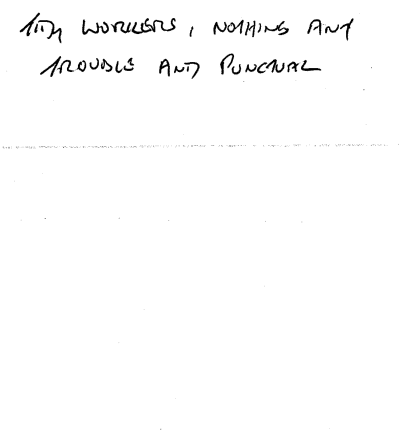 TIDY WORKERS, NOTHING ANY
TROUBLE AND PUNCTUAL